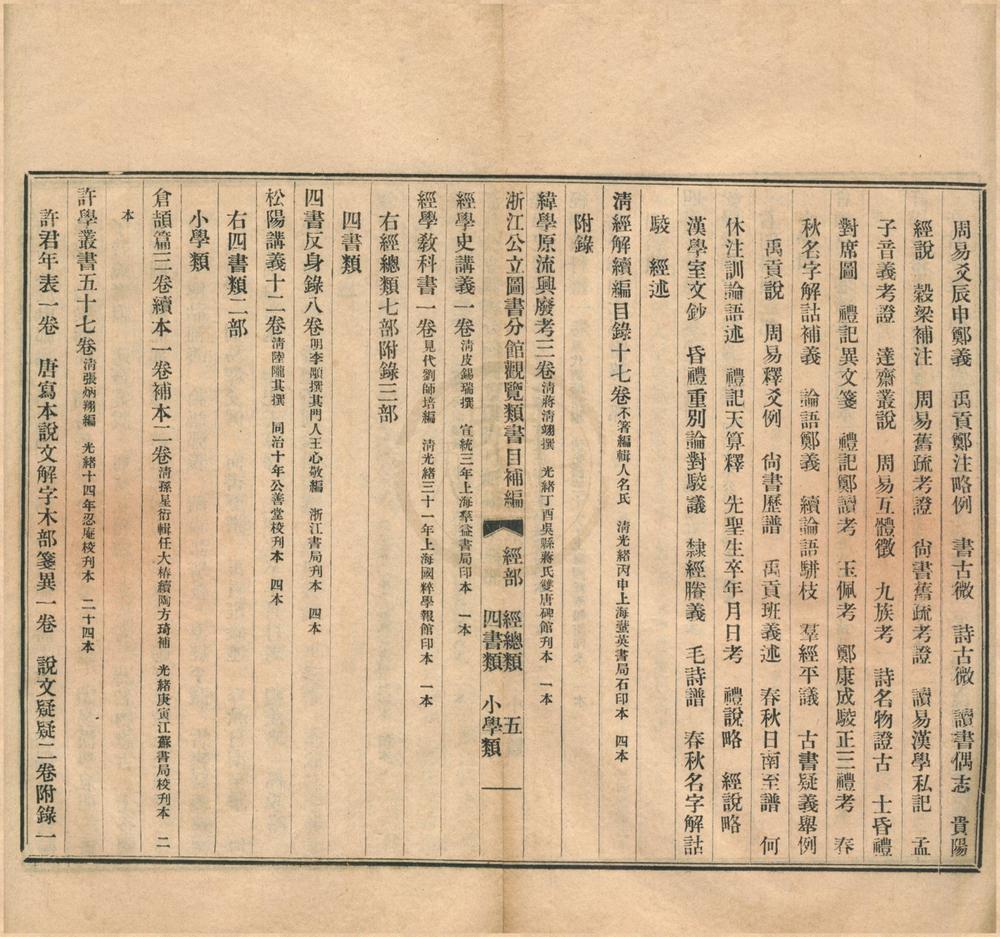 周易爻辰申鄭義　禹貢鄭注略例　書古微　詩古微　讀書偶志　貴陽
經說　穀梁補注　周易舊疏考證　尙書舊疏考證　讀易漢學私記　孟
子音義考證　達齋叢說　周易互體徵　九族考　詩名物證古　士昏禮
對席圖　禮記異文箋　禮記鄭讀考　玉佩考　鄭康成駁正三禮考　春
秋名字解詁補義　論語鄭義　續論語駢枝　羣經平議　古書疑義舉例
禹貢說　周易釋爻例　尙書歷譜　禹貢班義述　春秋日南至譜　何
休注訓論語述　禮記天算釋　先聖生卒年月日考　禮說略　經說略
漢學室文鈔　昏禮重別論對駁議　隸經賸義　毛詩譜　春秋名字解詁
駁　經述
清經解續編目錄十七卷不箸編輯人名氏　淸光緒丙申上海蜚英書局石印本　四本
附錄
緯學原流興廢考三卷淸蔣淸翊撰　光緒丁酉吳縣蔣氏雙唐碑館刋本　一本
浙江公立圖書分館觀覽類書目補編　經部　經總類　四書類　小學類　五
經學史講義一卷淸皮錫瑞撰　宣統三年上海羣益書局印本　一本
經學敎科書一卷見代劉師培編　淸光緒三十一年上海國粹學報館印本　一本
右經總類七部附錄三部
四書類
四書反身錄八卷明李顒撰其門人王心敬編　浙江書局刋本　四本
松陽講義十二卷淸陸隴其撰　同治十年公善堂校刋本　四本
右四書類二部
小學類
倉頡篇三卷續本一卷補本二卷淸孫星衍輯任大椿續陶方琦補　光緒庚寅江蘇書局校刋本　二
本
許學叢書五十七卷淸張炳翔編　光緒十四年忍庵校刋本　二十四本
許君年表一卷　唐寫本說文解字木部箋異一卷　說文疑疑二卷附錄一